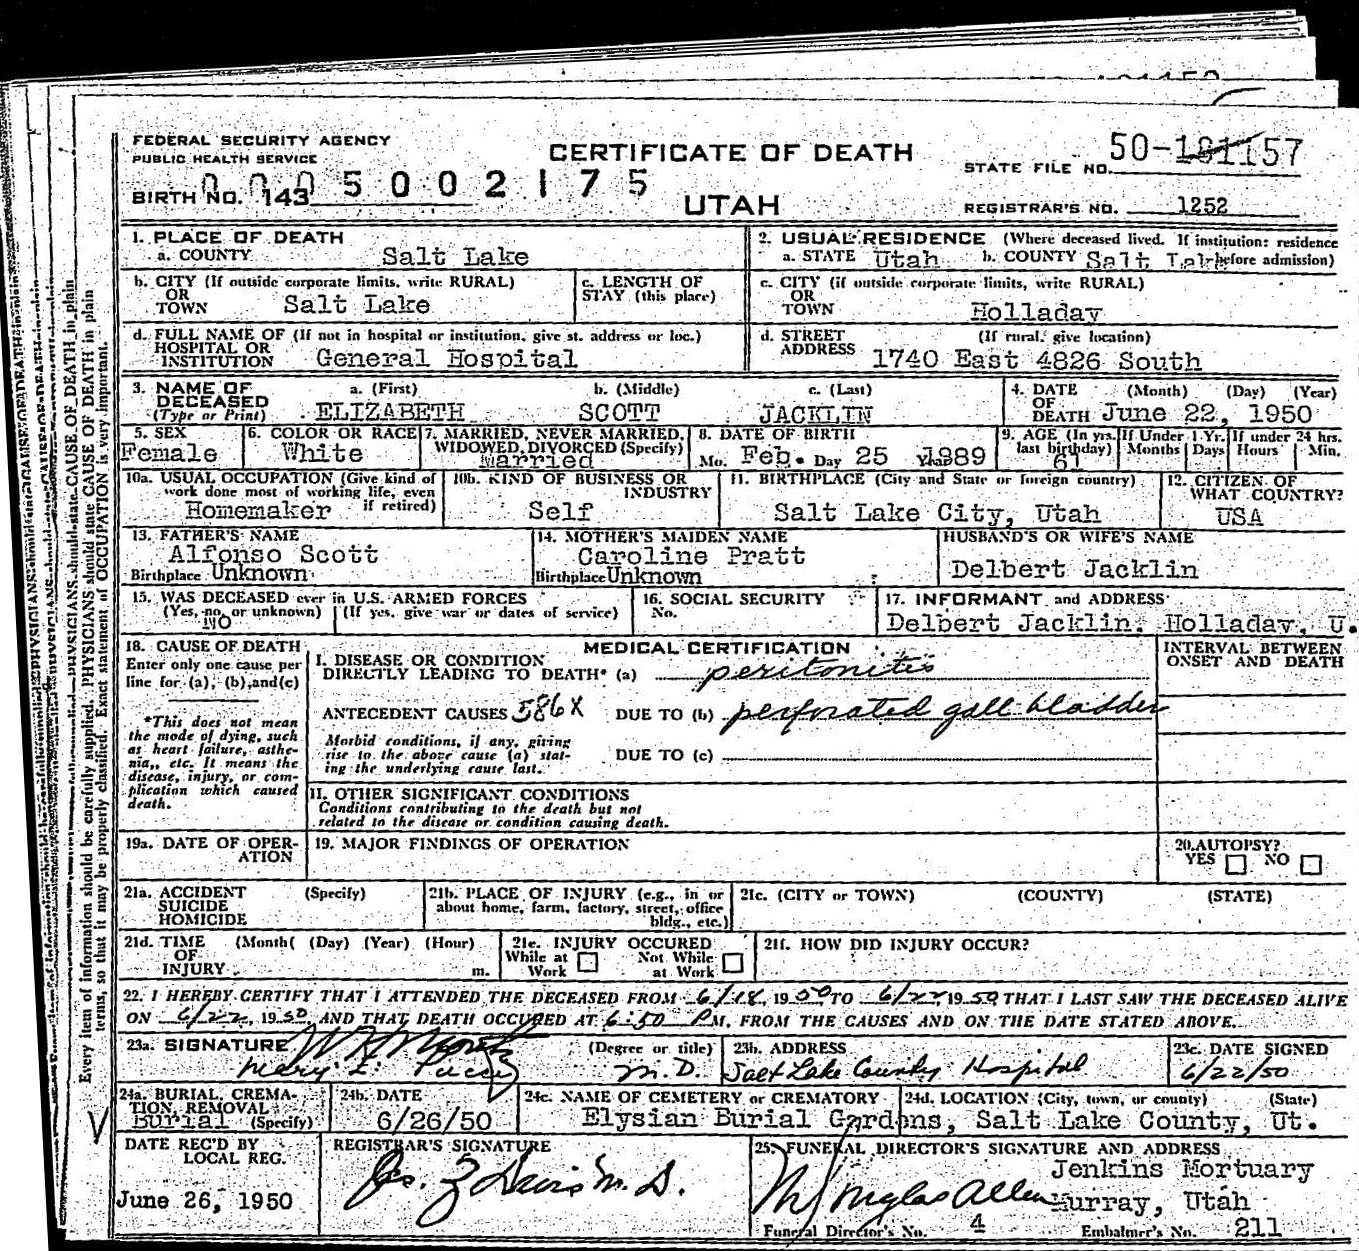 FEDERAL SECURITY AGENCY
PUBLIC HEALTH SERVICE
CERTIFICATE OF DEATH
STATE FILE NO. 50-101157
BIRTH NO. 143 0005002175
UTAH
REGISTRAR'S NO. 1252
1. PLACE OF DEATH
a. COUNTY Salt Lake
2. USUAL RESIDENCE (Where deceased lived. If institution: residence
a. STATE Utah b. COUNTY Salt Lake before admission)
b. CITY (If outside corporate limits, write RURAL)
OR
TOWN Salt Lake
c. LENGTH OF
STAY (this place)
c. CITY (if outside corporate limits, write RURAL)
OR
TOWN Holladay
d. FULL NAME OF (If not in hospital or institution, give st. address or loc.)
HOSPITAL OR
INSTITUTION General Hospital
d. STREET (If rural, give location)
ADDRESS 1740 East 4826 South
3. NAME OF a. (First) b. (Middle) c. (Last)
DECEASED
(Type or Print) ELIZABETH SCOTT JACKLIN
4. DATE (Month) (Day) (Year)
OF
DEATH June 22, 1950
5. SEX
Female
6. COLOR OR RACE
White
7. MARRIED, NEVER MARRIED,
WIDOWED, DIVORCED (Specify)
Married
8. DATE OF BIRTH
Mo. Feb. Day 25 Yr. 1889
9. AGE (In yrs. last birthday) 61
If Under 1 Yr. Months Days
If under 24 hrs. Hours Min.
10a. USUAL OCCUPATION (Give kind of
work done most of working life, even
if retired)
Homemaker
10b. KIND OF BUSINESS OR
INDUSTRY
Self
11. BIRTHPLACE (City and State or foreign country)
Salt Lake City, Utah
12. CITIZEN OF
WHAT COUNTRY?
USA
13. FATHER'S NAME
Alfonso Scott
Birthplace Unknown
14. MOTHER'S MAIDEN NAME
Caroline Pratt
Birthplace Unknown
HUSBAND'S OR WIFE'S NAME
Delbert Jacklin
15. WAS DECEASED ever in U.S. ARMED FORCES
(Yes, no, or unknown) (If yes, give war or dates of service)
NO
16. SOCIAL SECURITY
No.
17. INFORMANT and ADDRESS
Delbert Jacklin, Holladay, U.
18. CAUSE OF DEATH
Enter only one cause per
line for (a), (b), and (c)
*This does not mean
the mode of dying, such
as heart failure, asthe-
nia, etc. It means the
disease, injury, or com-
plication which caused
death.
MEDICAL CERTIFICATION
INTERVAL BETWEEN
ONSET AND DEATH
I. DISEASE OR CONDITION
DIRECTLY LEADING TO DEATH* (a) peritonitis
ANTECEDENT CAUSES 586X DUE TO (b) perforated gall bladder
Morbid conditions, if any, giving
rise to the above cause (a) stat-
ing the underlying cause last.
DUE TO (c)
II. OTHER SIGNIFICANT CONDITIONS
Conditions contributing to the death but not
related to the disease or condition causing death.
19a. DATE OF OPER-
ATION
19. MAJOR FINDINGS OF OPERATION
20. AUTOPSY?
YES NO
21a. ACCIDENT (Specify)
SUICIDE
HOMICIDE
21b. PLACE OF INJURY (e.g., in or
about home, farm, factory, street, office
bldg., etc.)
21c. (CITY or TOWN) (COUNTY) (STATE)
21d. TIME (Month( (Day) (Year) (Hour)
OF
INJURY m.
21e. INJURY OCCURED
While at Work Not While at Work
21f. HOW DID INJURY OCCUR?
22. I HEREBY CERTIFY THAT I ATTENDED THE DECEASED FROM 6/18, 1950 TO 6/22 1950 THAT I LAST SAW THE DECEASED ALIVE
ON 6/22, 1950, AND THAT DEATH OCCURED AT 6:50 PM, FROM THE CAUSES AND ON THE DATE STATED ABOVE.
23a. SIGNATURE (Degree or title)
Mary M.D.
23b. ADDRESS
Salt Lake County Hospital
23c. DATE SIGNED
6/22/50
24a. BURIAL, CREMA-
TION, REMOVAL
Burial (Specify)
24b. DATE
6/26/50
24c. NAME OF CEMETERY or CREMATORY 24d. LOCATION (City, town, or county) (State)
Elysian Burial Gardens, Salt Lake County, Ut.
DATE REC'D BY
LOCAL REG.
June 26, 1950
REGISTRAR'S SIGNATURE
Davis M.D.
25. FUNERAL DIRECTOR'S SIGNATURE AND ADDRESS
Jenkins Mortuary
Douglas Allen Murray, Utah
Funeral Director's No. 4 Embalmer's No. 211
Every item of information should be carefully supplied. PHYSICIANS should state CAUSE OF DEATH in plain
terms, so that it may be properly classified. Exact statement of OCCUPATION is very important.